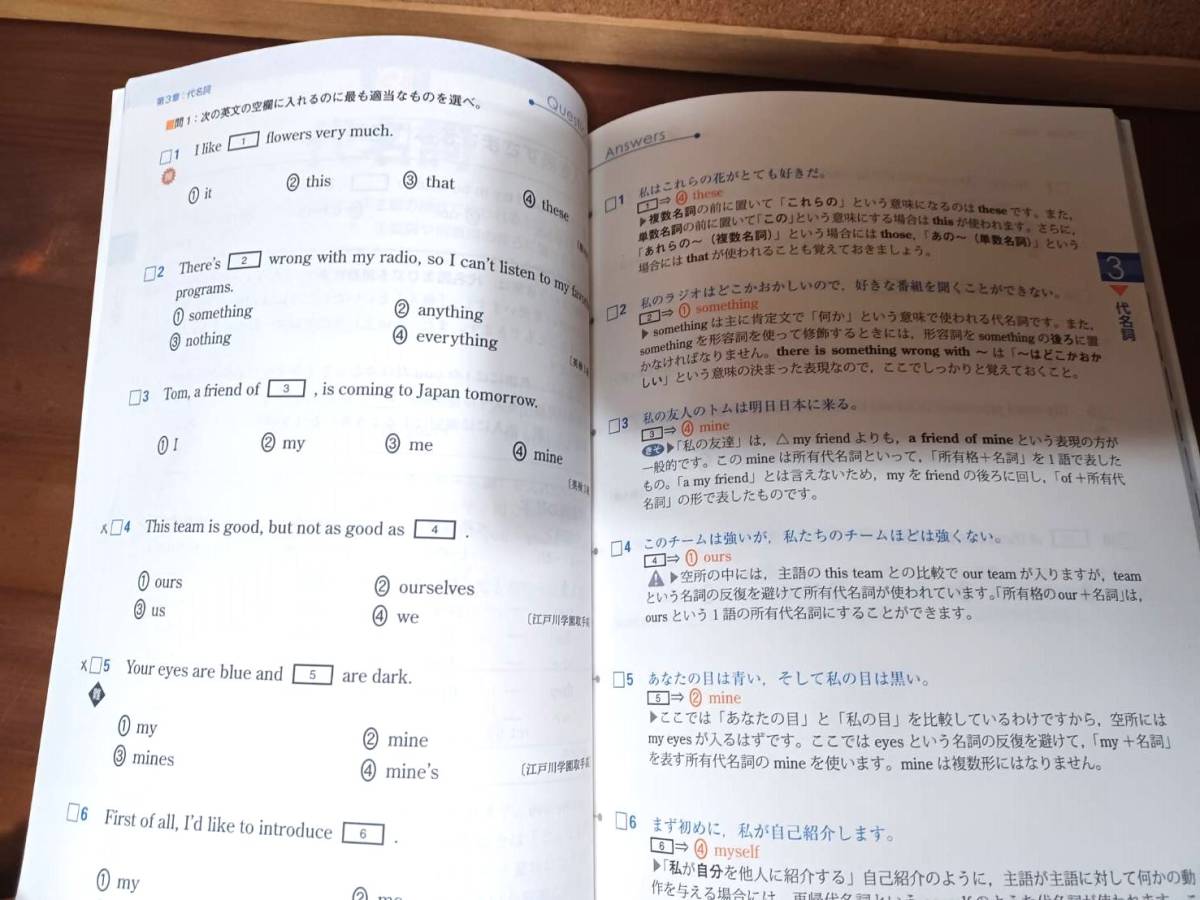 第3章：代名詞
問1：次の英文の空欄に入れるのに最も適当なものを選べ。
1 I like 1 flowers very much.
① it ② this ③ that ④ these
2 There's 2 wrong with my radio, so I can't listen to my
programs.
① something ② anything
③ nothing ④ everything
3 Tom, a friend of 3 , is coming to Japan tomorrow.
① I ② my ③ me ④ mine
4 This team is good, but not as good as 4 .
① ours ② ourselves
③ us ④ we
〔江戸川学園取手
5 Your eyes are blue and 5 are dark.
難
① my ② mine
③ mines ④ mine's
〔江戸川学園取手
6 First of all, I'd like to introduce 6 .
① my ② me
Answers
1 私はこれらの花がとても好きだ。
1⇒ ④ these
▶複数名詞の前に置いて「これらの」という意味になるのは these です。また，
単数名詞の前に置いて「この」という意味にする場合は this が使われます。さらに，
「あれらの〜（複数名詞）」という場合には those，「あの〜（単数名詞）」という
場合には that が使われることも覚えておきましょう。
2 私のラジオはどこかおかしいので，好きな番組を聞くことができない。
2⇒ ① something
▶ something は主に肯定文で「何か」という意味で使われる代名詞です。また，
something を形容詞を使って修飾するときには，形容詞を something の後ろに置
かなければなりません。there is something wrong with 〜 は「〜はどこかおか
しい」という意味の決まった表現なので，ここでしっかりと覚えておくこと。
3 私の友人のトムは明日日本に来る。
3⇒ ④ mine
きそ ▶「私の友達」は，△ my friend よりも，a friend of mine という表現の方が
一般的です。この mine は所有代名詞といって，「所有格＋名詞」を1語で表した
もの。「a my friend」とは言えないため，my を friend の後ろに回し，「of＋所有代
名詞」の形で表したものです。
4 このチームは強いが，私たちのチームほどは強くない。
4⇒ ① ours
▶空所の中には，主語の this team との比較で our team が入りますが，team
という名詞の反復を避けて所有代名詞が使われています。「所有格の our＋名詞」は，
ours という1語の所有代名詞にすることができます。
5 あなたの目は青い，そして私の目は黒い。
5⇒ ② mine
▶ここでは「あなたの目」と「私の目」を比較しているわけですから，空所には
my eyes が入るはずです。ここでは eyes という名詞の反復を避けて，「my＋名詞」
を表す所有代名詞の mine を使います。mine は複数形にはなりません。
6 まず初めに，私が自己紹介します。
6⇒ ④ myself
▶「私が自分を他人に紹介する」自己紹介のように，主語が主語に対して何かの動
作を与える場合には，再帰代名詞という
3
代名詞